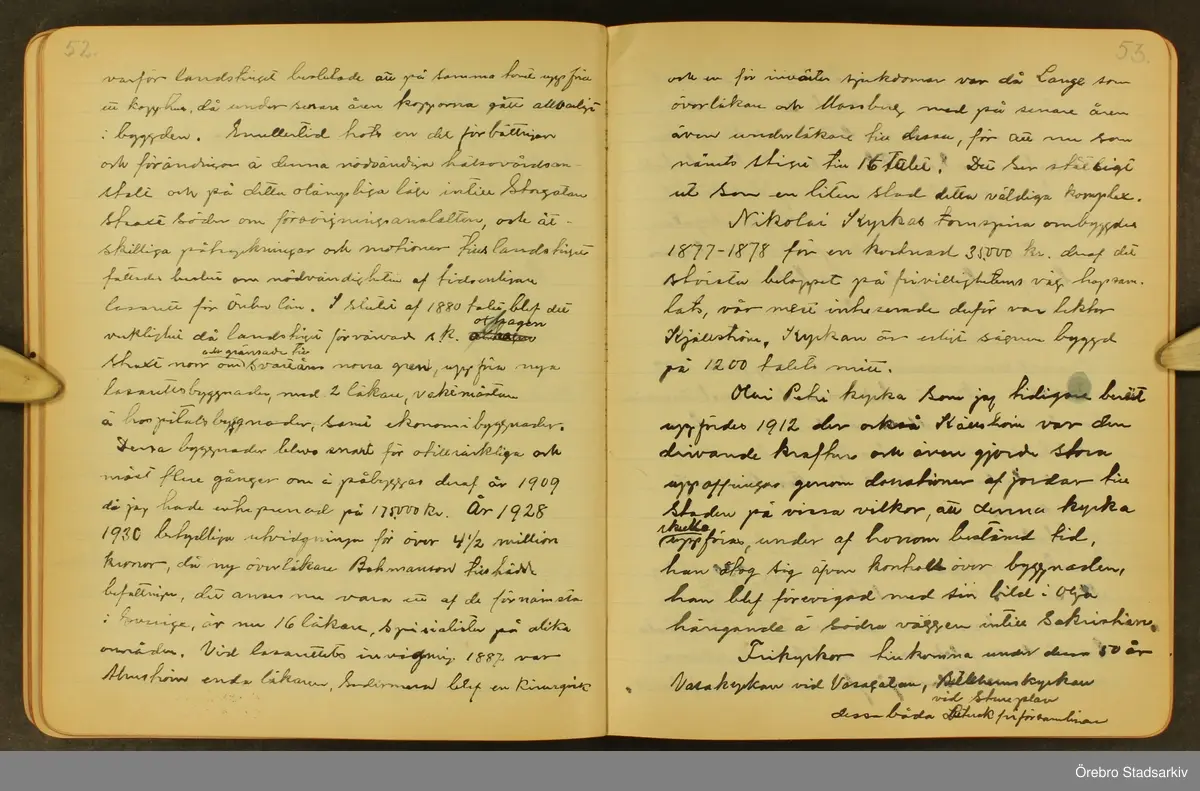 52.
varför landstinget beslutade att på samma tomt uppföra
ett kopphus, då under senare åren kopporna gått allvarligt
i bygden. Emellertid hots en del förbättringar
och förändringar å denna nödvändiga hälsovårdsan-
stalt och på detta olämpliga läge intill Storgatan
straxt söder om försörjningsanstalten, och åt-
skilliga påtryckningar och motioner till landstinget
fattades beslut om nödvändigheten af tidsenligare
lasarett för Örebro län. I slutet af 1880 talet blef det
verklighet då landstinget förvärvade s.k. olhagen
straxt norr om och gränsade till Svartåns norra gren, uppföra nya
lasarettsbyggnader, med 2 läkare, vaktmästare
å hospitalsbyggnader, samt ekonomibyggnader.
Dessa byggnader blevo snart för otillräckliga och
måst flere gånger om å påbyggas deraf år 1909
då jag hade entreprenad på 175000 kr. År 1928
1930 betydliga utvidgningar för över 4 1/2 million
kronor, då ny överläkare Bohmanson tillträdde
befattningen, det anses nu vara ett af de förnämsta
i Sverige, är nu 16 läkare, specialister på olika
områden. Vid lasarettets invigning 1887 var
Almström enda läkaren, sedermera blef en kirurgisk
53.
och en för invärtes sjukdomar var då Lange som
överläkare och Mossberg med på senare åren
även underläkare till dessa, för att nu som
nämts stigit till 16 talet. Det ser ståtligt
ut som en liten stad detta väldiga komplex.
Nikolai Kyrkas tornspira ombyggdes
1877-1878 för en kostnad 35000 kr. deraf det
största beloppet på frivillighetens väg hopsam-
lats, vår mest intreserade derför var lektor
Kjällström. Kyrkan är enligt sägnen byggd
på 1200 talets mitt.
Olai Petri kyrka som jag tidigare berört
uppfördes 1912 der också Källström var den
drivande kraften och även gjorde stora
uppoffringar genom donationer af jordar till
Staden på vissa vilkor, att denna kyrka
skulle
uppföras, under af honom bestämd tid,
han tog sig även kontroll över byggnaden,
han blef förevigad med sin bild i Olja
hängande å södra väggen intill Sakristian.
Frikyrkor tillkomna under dessa 50 år
Vasakyrkan vid Vasagatan, Betlehemskyrkan
vid Stureplan
dessa båda
Örebro Stadsarkiv